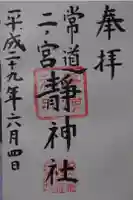 奉拝
常道
二ノ宮靜神社
平成二十九年六月四日